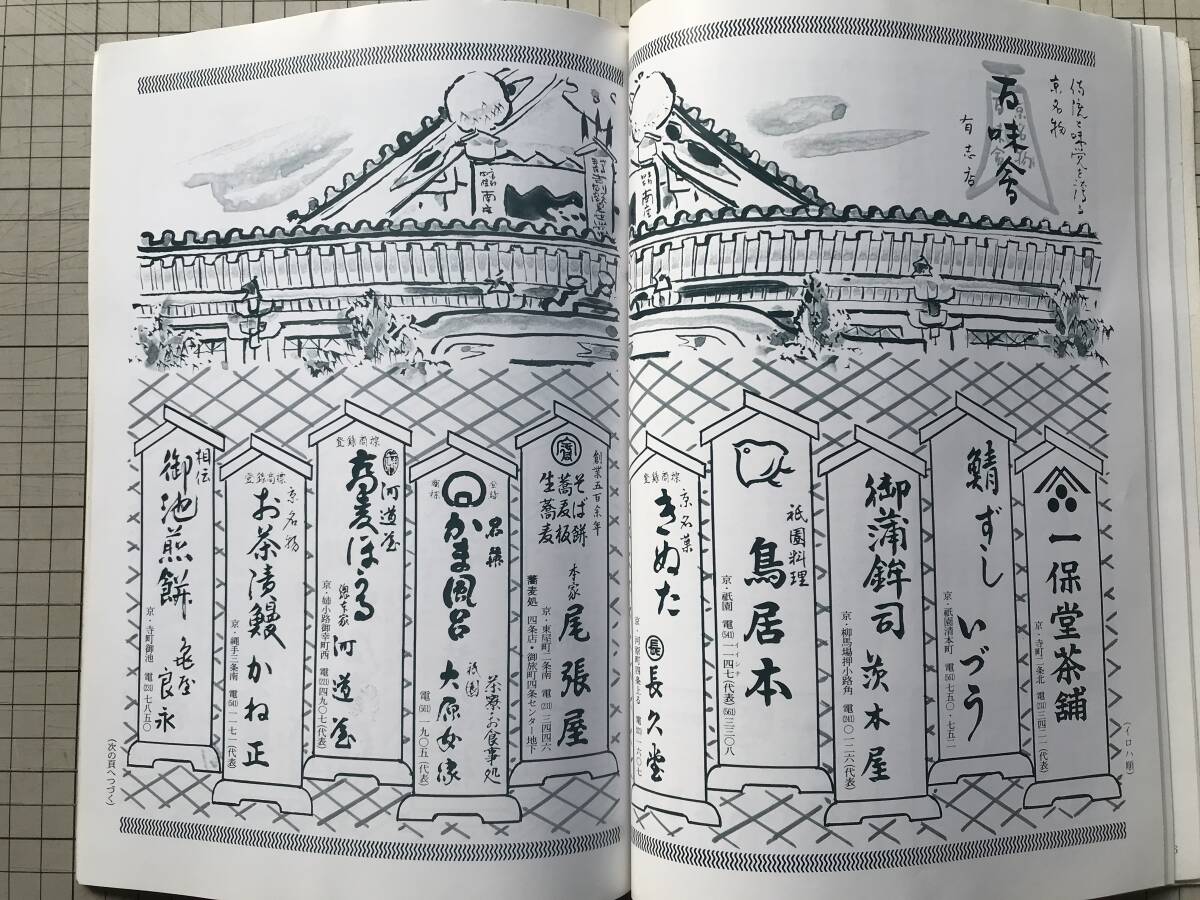 伝統と味覚を誇る
京名物
百味會
有志店
南座
南座
(イロハ順)
一保堂茶舗
京・寺町二条北 電(231)三四二一(代表)
鯖ずし いづう
京・祇園清本町 電(561)七五〇・七五二
御蒲鉾司 茨木屋
京・柳馬場押小路角 電(241)〇一二六(代表)
祇園料理
鳥居本
京・祇園 電(541)一一四七(代表)(561)三三〇八
イイシナ
登録商標
京名菓
きぬた
長 長久堂
京・河原町四条上る 電(221)一六〇七
創業五百余年
そば餅
蕎麦板
生蕎麦
本家 尾張屋
京・東屋町二条南 電(231)三四四六
蕎麦処 四条店・御旅町四条センター地下
登録
商標
名菓
かま風呂
茶寮お食事処
祇園 大原女家
電(561)一九〇五(代表)
登録商標
河道屋
蕎麦ほうる
総本家 河道屋
京・姉小路御幸町西 電(221)四九〇七(代表)
登録商標
京名物
お茶漬鰻 かね正
京・縄手三条南 電(541)一一七一(代表)
相伝
御池煎餅 亀屋良永
京・寺町御池 電(231)七八五〇
(次の頁へつづく)